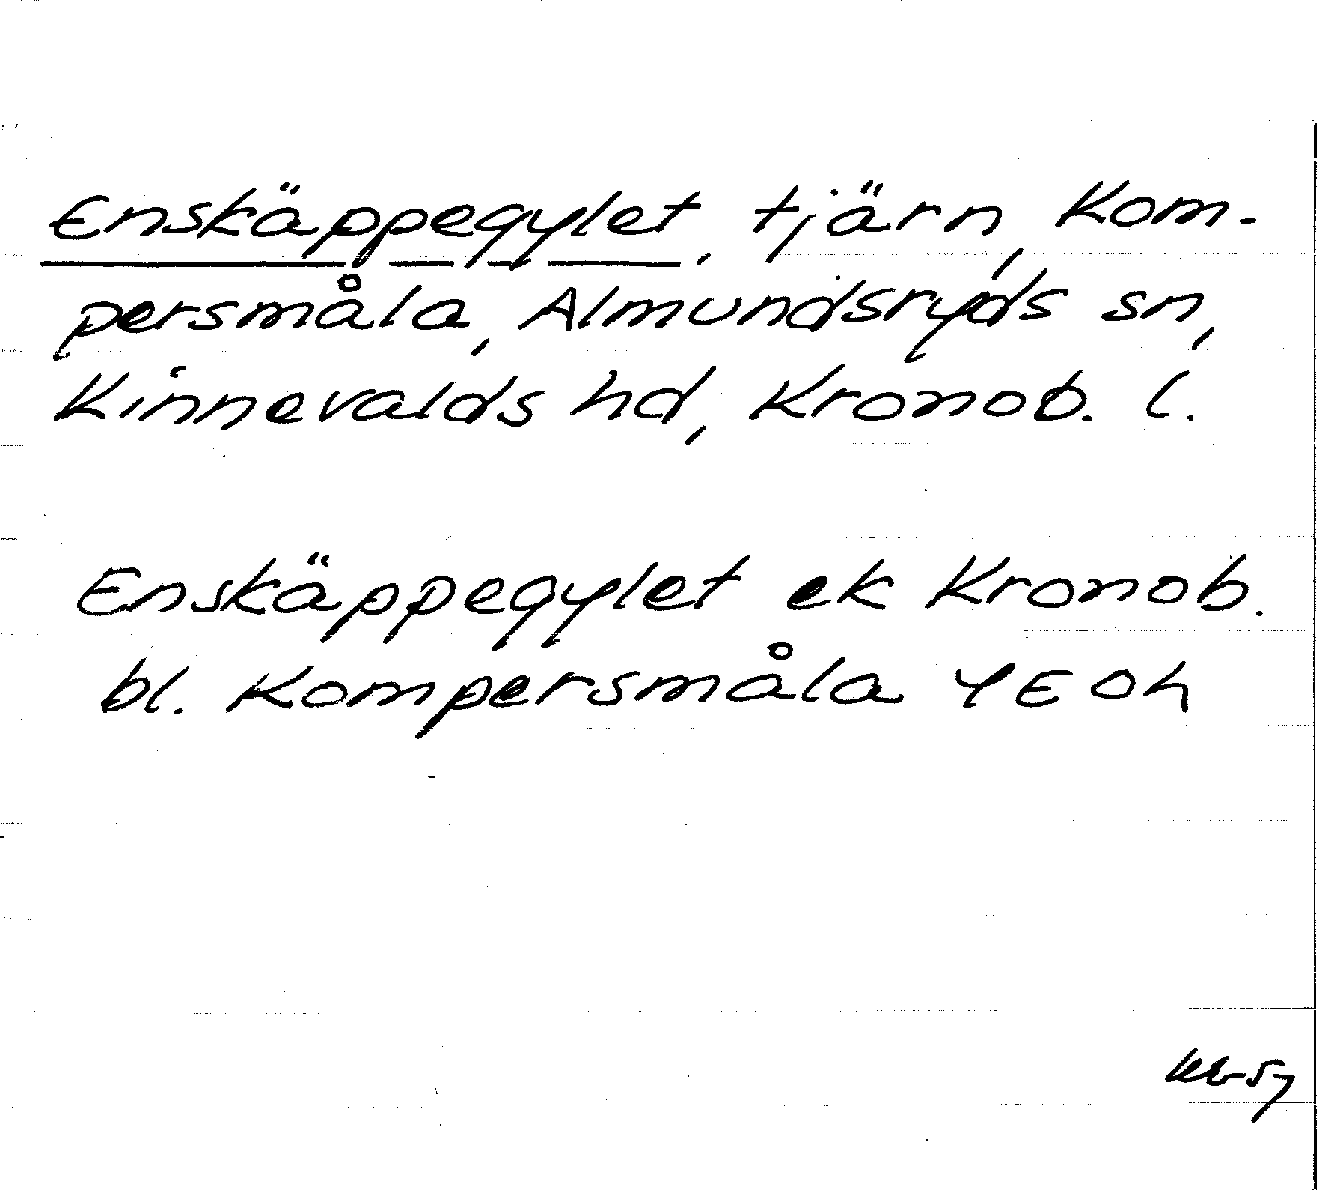 Enskäppegylet, tjärn, Kom-
persmåla, Almundsryds sn,
Kinnevalds hd, Kronob. l.
Enskäppegylet ek Kronob.
bl. Kompersmåla YEOh